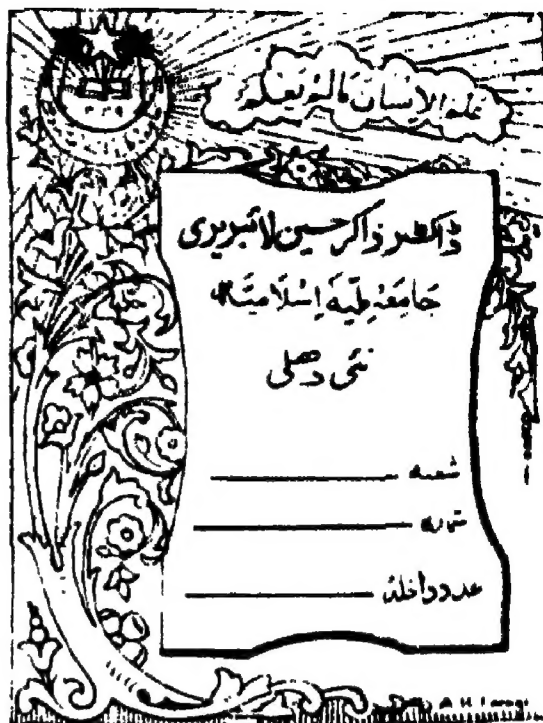 علم الانسان مالم يعلم
ڈاکٹر ذاکر حسین لائبریری
جامعہ ملیہ اسلامیہ
نئی دہلی
شعبہ
شمارہ
عدد داخلہ
A. H.